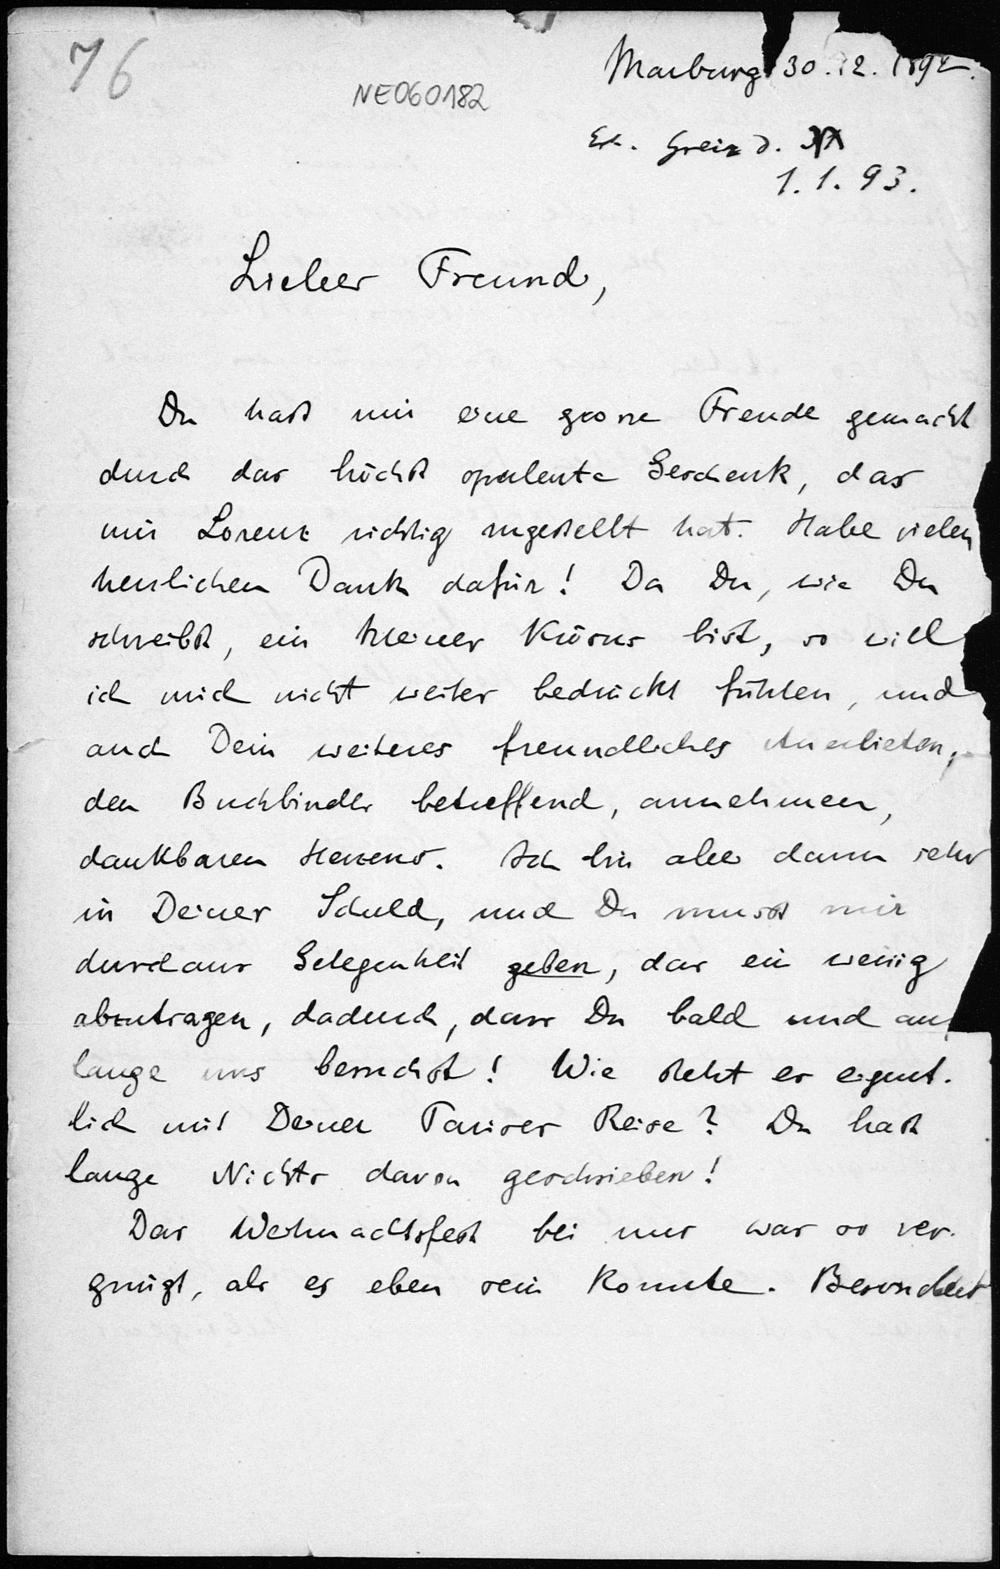 76
NE060182
Marburg 30.12.1892.
Erh. Greiz d.
1.1.93.
Lieber Freund,
Du hast mir eine grosse Freude gemacht
durch das höchst opulente Geschenk, das
mir Lorenz richtig zugestellt hat. Habe vielen
herzlichen Dank dafür! Da Du, wie Du
schreibst, ein kleiner Krösus bist, so will
ich mich nicht weiter bedrückt fühlen, und
auch Dein weiteres freundliches Anerbieten,
den Buchbinder betreffend, annehmen,
dankbaren Herzens. Ich bin aber dann sehr
in Deiner Schuld, und Du musst mir
durchaus Gelegenheit geben, das ein wenig
abzutragen, dadurch, dass Du bald und auf
lange uns besuchst! Wie steht es eigent-
lich mit Deiner Pariser Reise? Du hast
lange Nichts davon geschrieben!
Das Weihnachtsfest bei uns war so ver-
gnügt, als es eben sein konnte. Bescheert